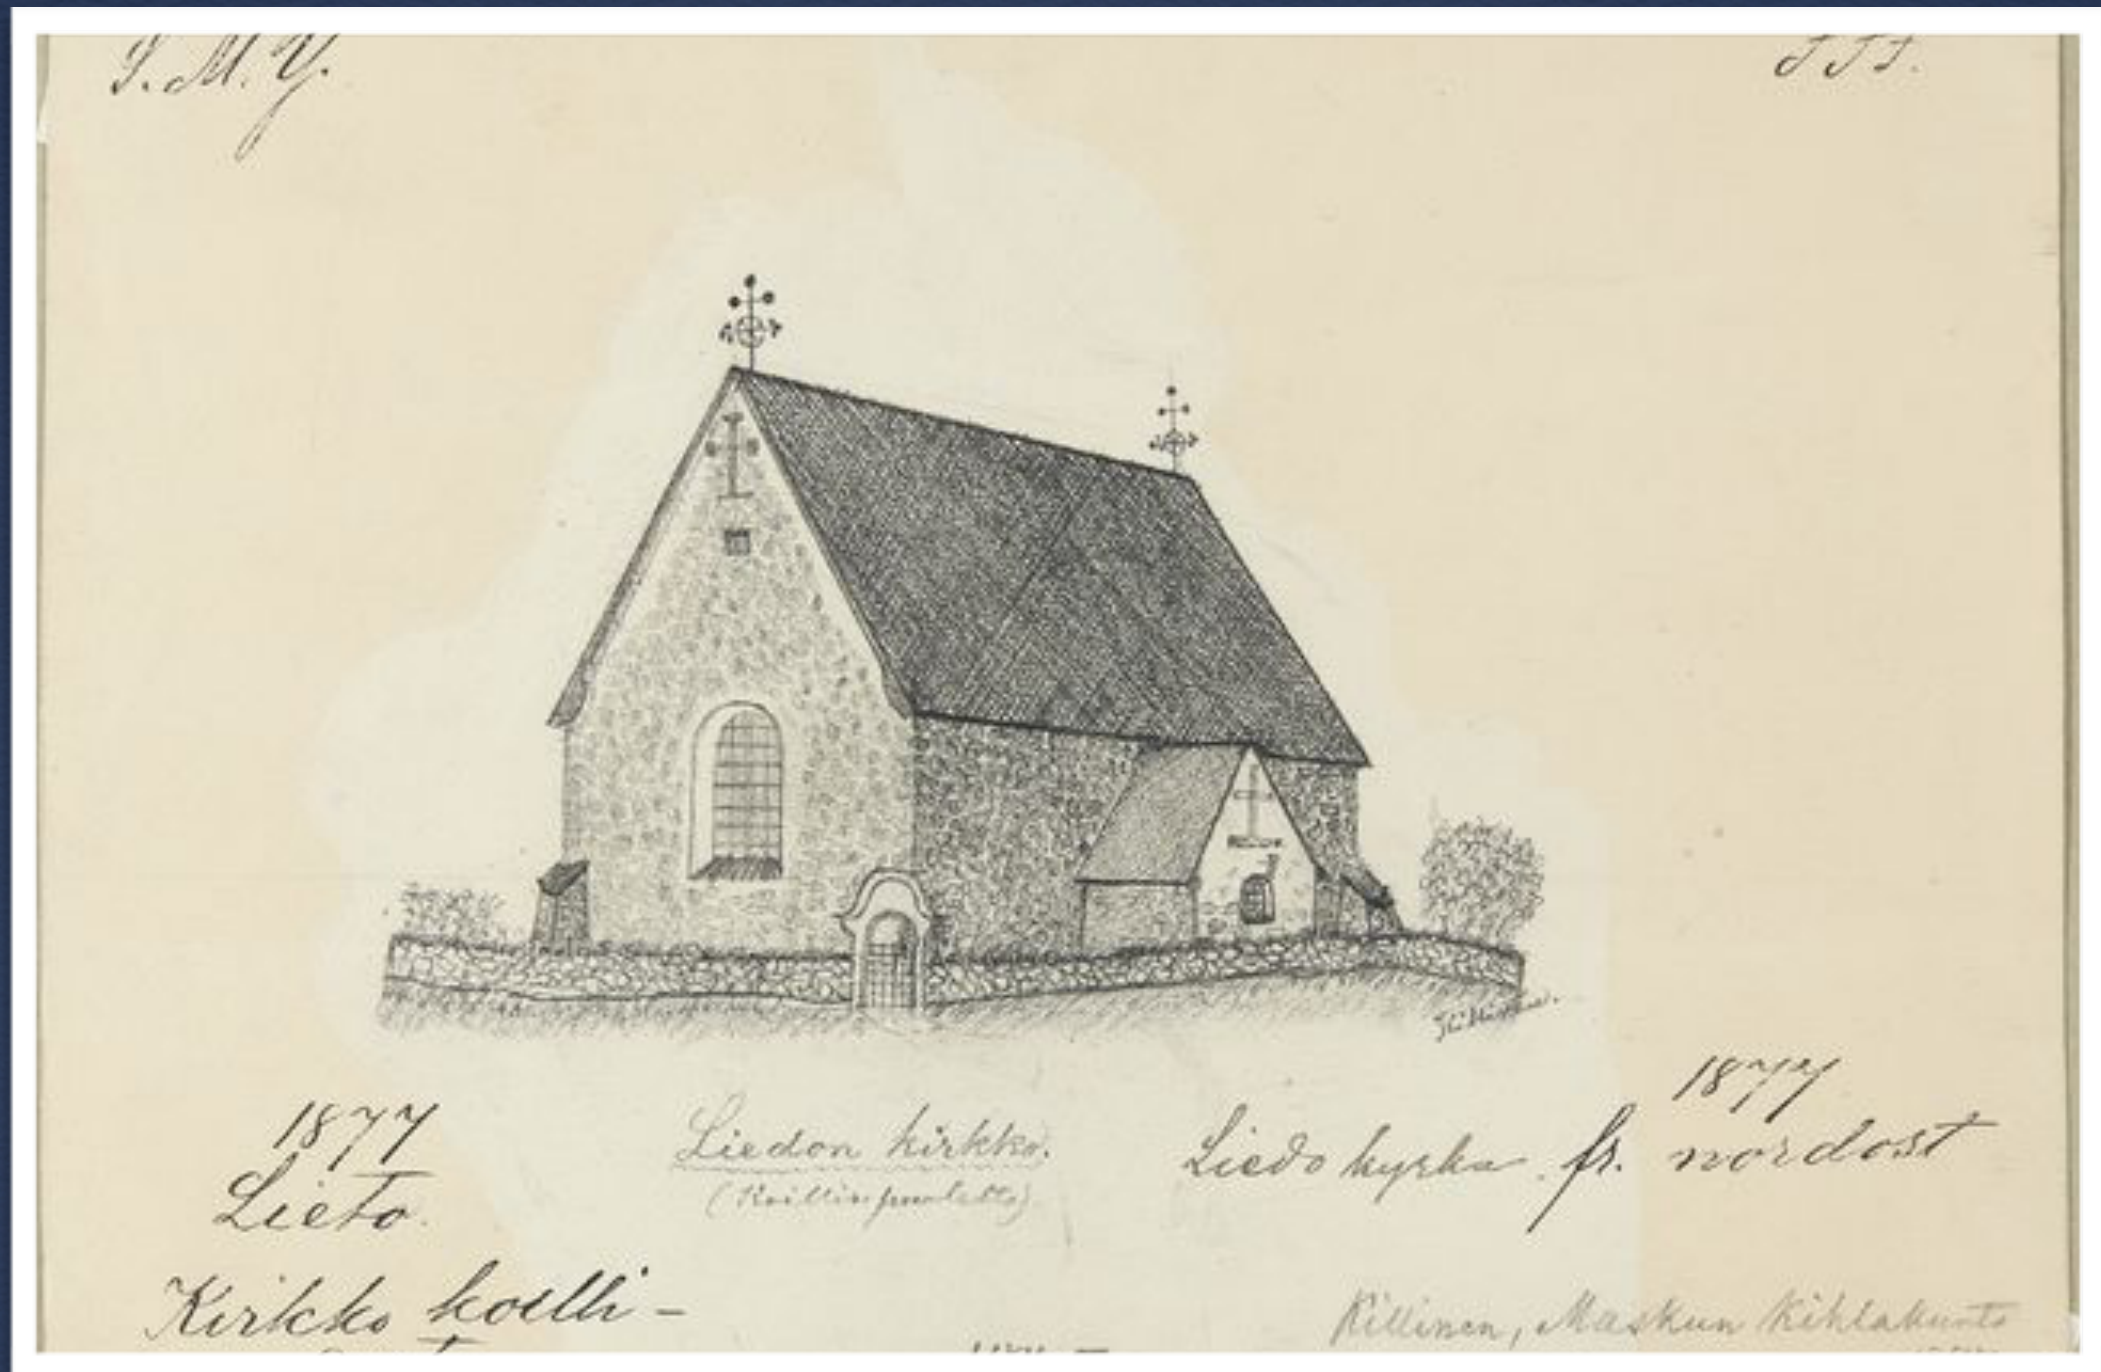 S. M. Y.
1877
Lieto.
Kirkko koilli-
Liedon kirkko.
1877
Liedo kyrka fr. nordost
Killinen, Maskun kihlakunta